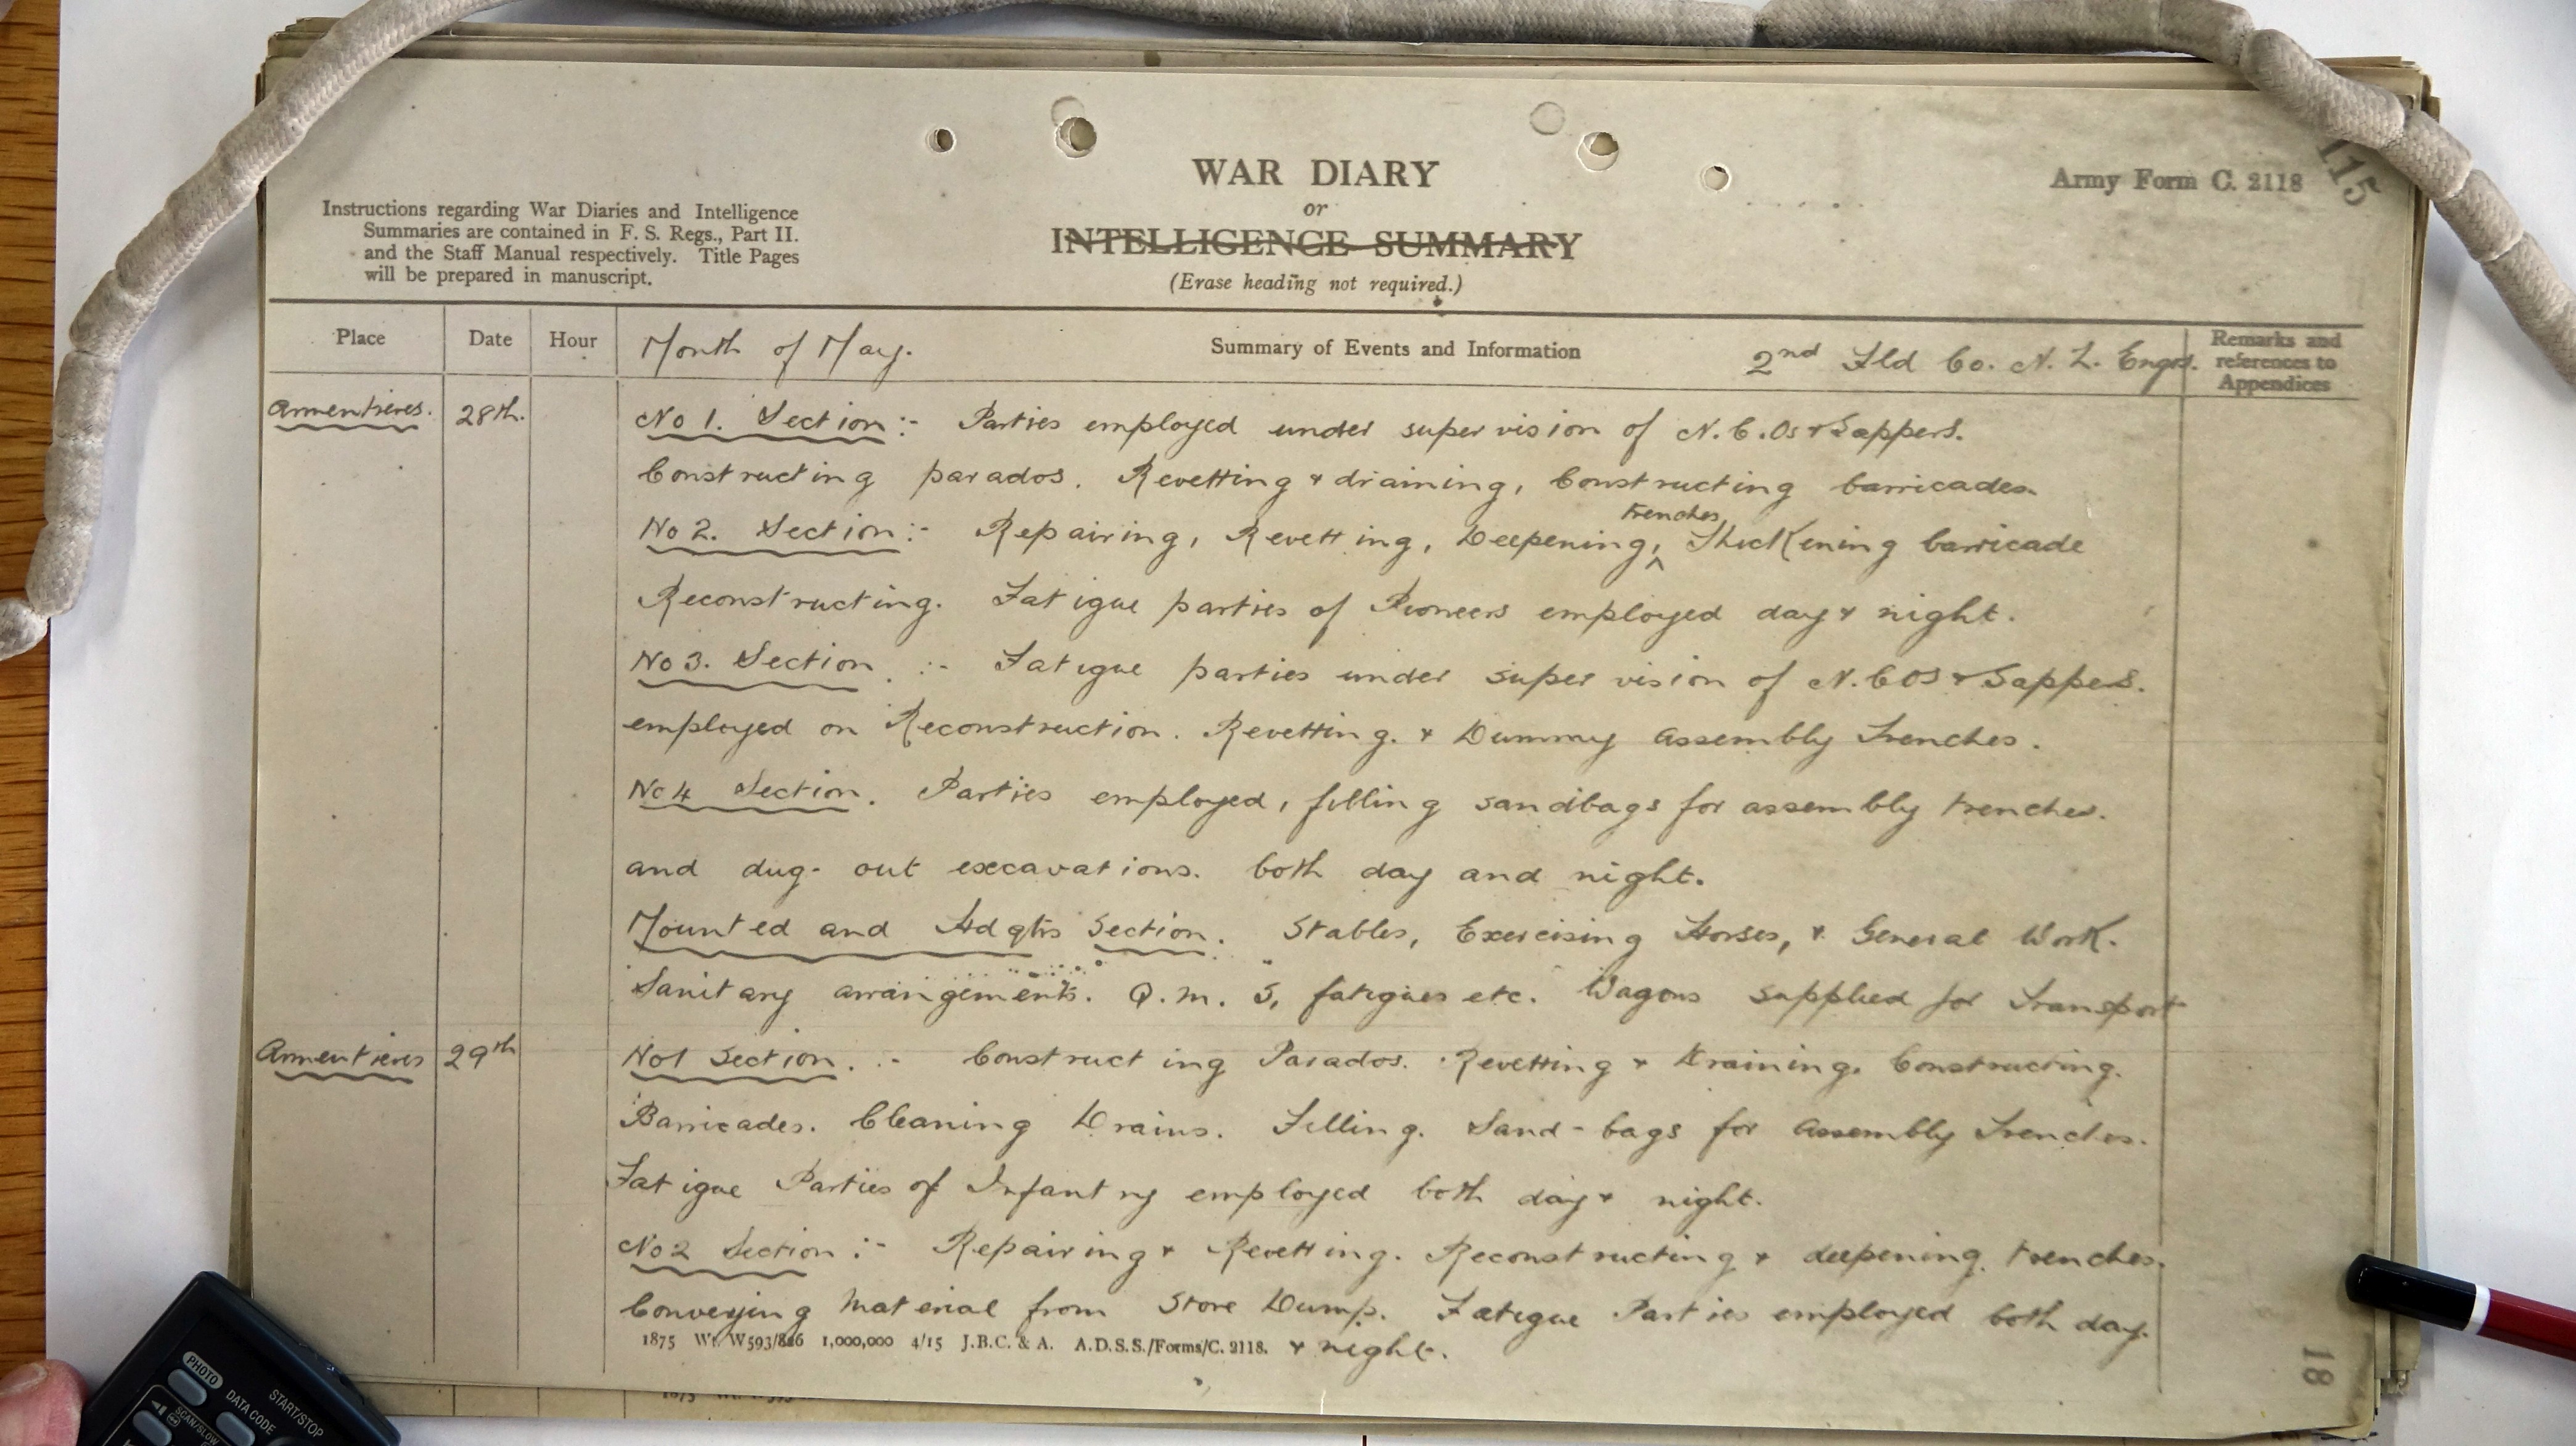 115
Army Form C. 2118
WAR DIARY
or
INTELLIGENCE SUMMARY
(Erase heading not required.)
Instructions regarding War Diaries and Intelligence
Summaries are contained in F. S. Regs., Part II.
and the Staff Manual respectively. Title Pages
will be prepared in manuscript.
Place Date Hour Month of May. Summary of Events and Information 2nd Fld Co. N. Z. Engrs. Remarks and
references to
Appendices
Armentieres. 28th. No 1. Section :- Parties employed under supervision of N.C.Os & Sappers.
Constructing parados. Revetting & draining, Constructing barricades.
No 2. Section :- Repairing, Revetting, Deepening, trenches, Thickening barricade
Reconstructing. Fatigue parties of Pioneers employed day & night.
No 3. Section. :- Fatigue parties under supervision of N.COS & Sappers.
employed on Reconstruction. Revetting. & Dummy Assembly Trenches.
No 4 Section. Parties employed, filling sandbags for assembly trenches.
and dug-out excavations. both day and night.
Mounted and Hdqtrs Section. Stables, Exercising Horses, & General Work.
Sanitary arrangements. Q.M. S, fatigues etc. Wagons supplied for Transport
Armentieres 29th No1 Section. :- Constructing Parados. Revetting & Draining. Constructing.
Barricades. Cleaning Drains. Filling. Sand-bags for Assembly Trenches.
Fatigue Parties of Infantry employed both day & night.
No 2 Section :- Repairing & Revetting. Reconstructing & deepening. trenches.
Conveying Material from Store Dump. Fatigue Parties employed both day.
1875 Wt. W593/826 1,000,000 4/15 J.B.C. & A. A.D.S.S./Forms/C. 2118. & night.
18
PHOTO
DATA CODE
START/STOP
SCAN/SLOW